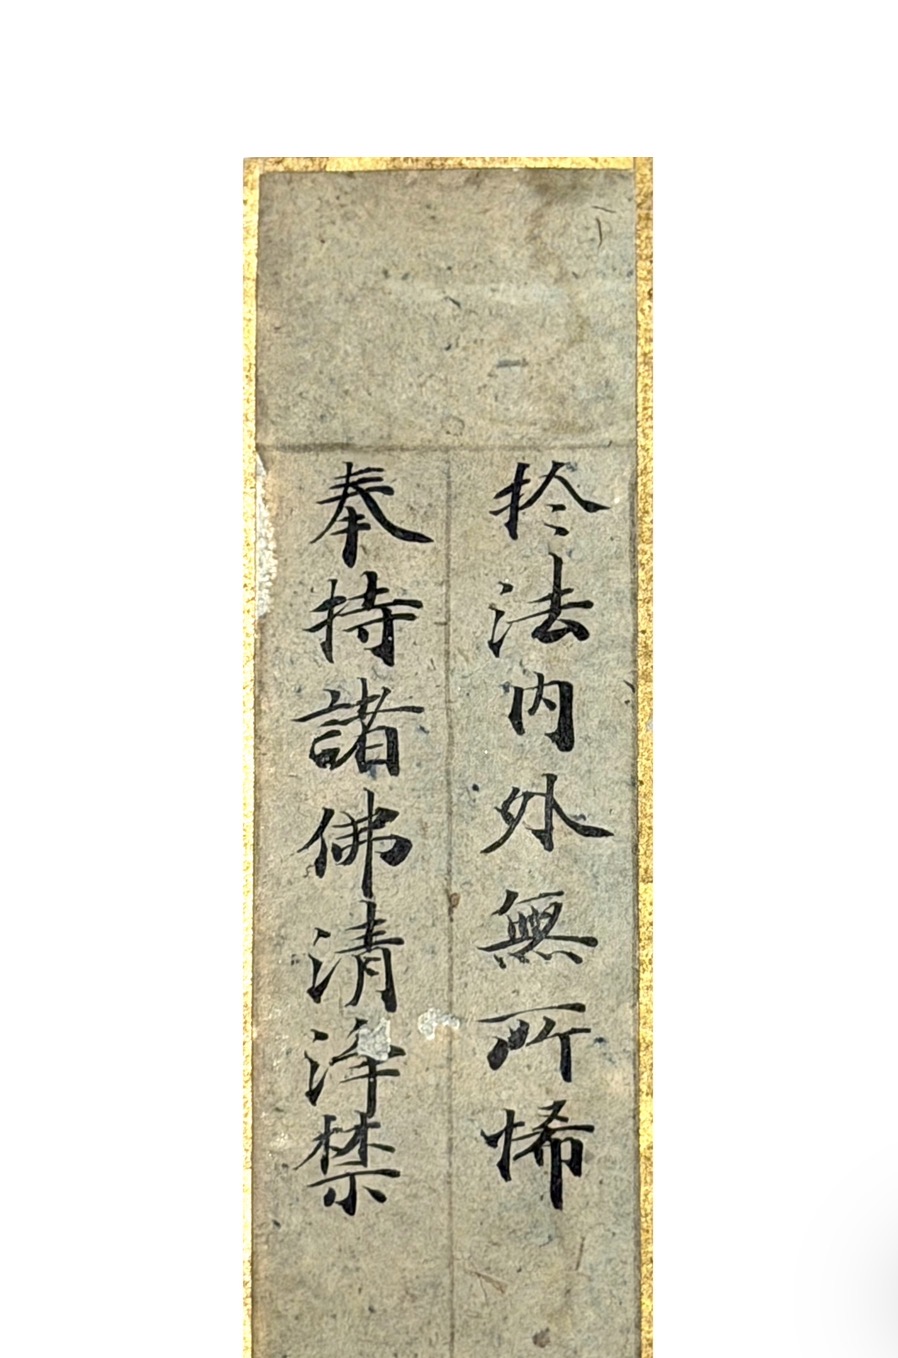 扵法內外無所悕
奉持諸佛清淨禁